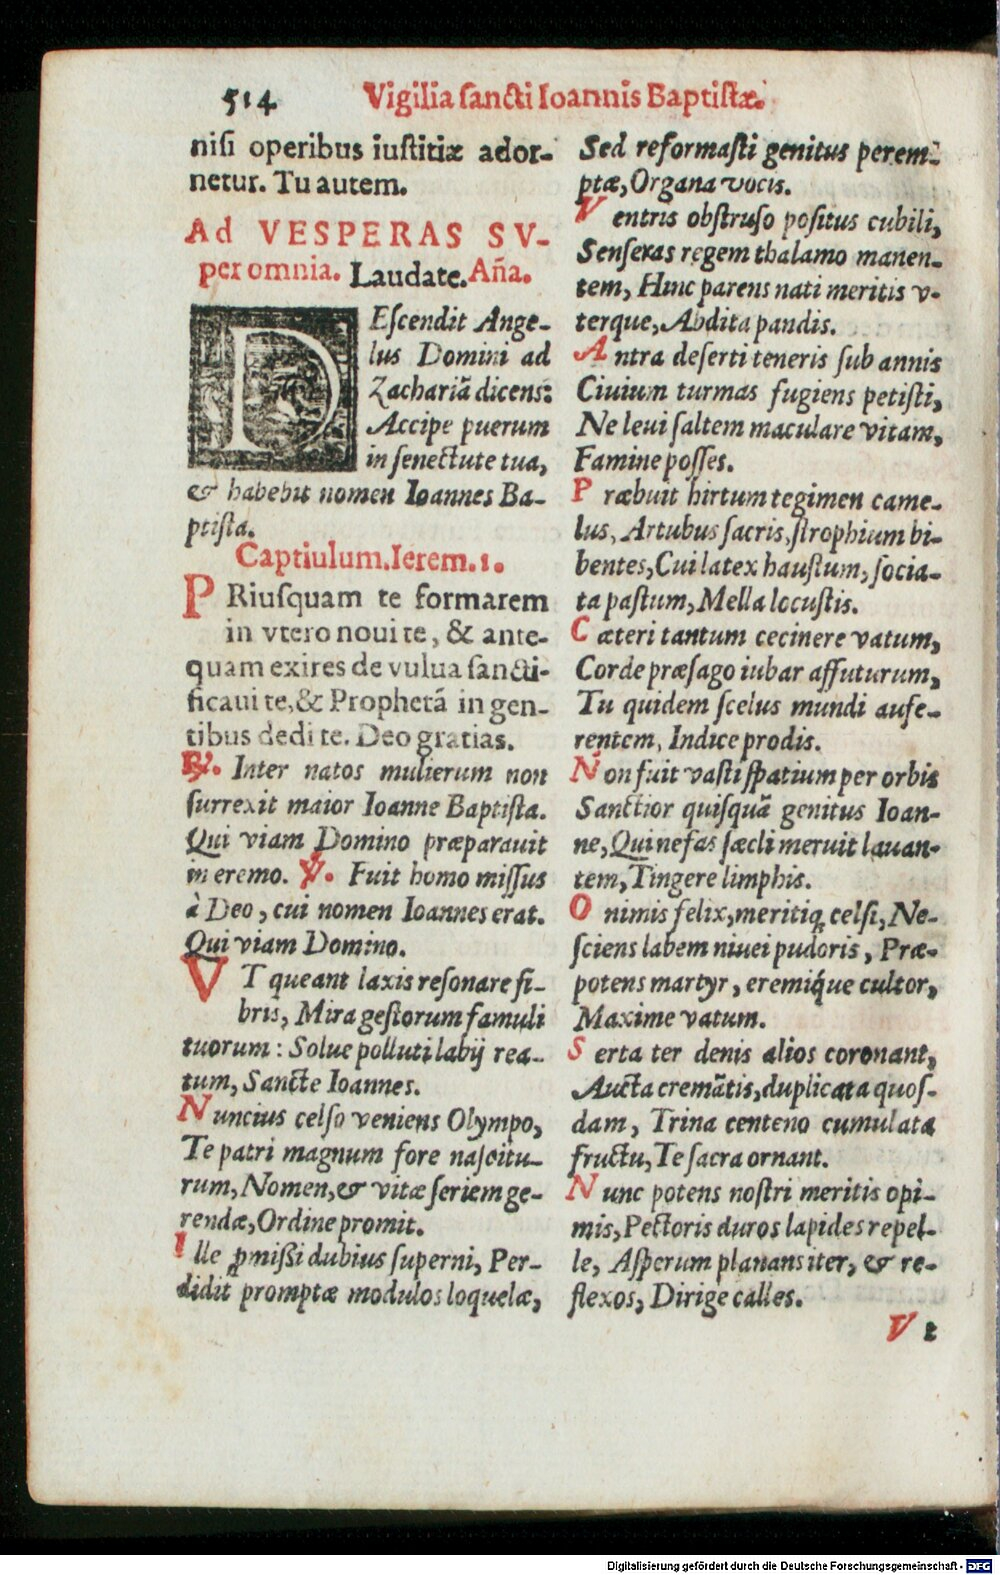 514 Vigilia sancti Ioannis Baptistæ.
nisi operibus iustitiæ ador-
netur. Tu autem.
Ad VESPERAS SV-
per omnia. Laudate. Aña.
DEscendit Ange-
lus Domini ad
Zachariã dicens:
Accipe puerum
in senectute tua,
& habebit nomen Ioannes Ba-
ptista.
Captiulum. Ierem. 1.
PRiusquam te formarem
in vtero noui te, & ante-
quam exires de vulua sancti-
ficaui te, & Prophetã in gen-
tibus dedi te. Deo gratias.
℞. Inter natos mulierum non
surrexit maior Ioanne Baptista.
Qui viam Domino præparauit
in eremo. ℣. Fuit homo missus
à Deo, cui nomen Ioannes erat.
Qui viam Domino.
VT queant laxis resonare fi-
bris, Mira gestorum famuli
tuorum: Solue polluti labij rea-
tum, Sancte Ioannes.
Nuncius celso veniens Olympo,
Te patri magnum fore nascitu-
rum, Nomen, & vitæ seriem ge-
rendæ, Ordine promit.
Ille ꝓmissi dubius superni, Per-
didit promptæ modulos loquelæ,
Sed reformasti genitus perem-
ptæ, Organa vocis.
Ventris obstruso positus cubili,
Senseras regem thalamo manen-
tem, Hinc parens nati meritis v-
terque, Abdita pandis.
Antra deserti teneris sub annis
Ciuium turmas fugiens petisti,
Ne leui saltem maculare vitam,
Famine posses.
Præbuit hirtum tegimen came-
lus, Artubus sacris, strophium bi-
bentes, Cui latex haustum, socia-
ta pastum, Mella locustis.
Cæteri tantum cecinere vatum,
Corde præsago iubar affuturum,
Tu quidem scelus mundi aufe-
rentem, Indice prodis.
Non fuit vasti spatium per orbis
Sanctior quisquã genitus Ioan-
ne, Qui nefas sæcli meruit lauan-
tem, Tingere limphis.
O nimis felix, meritiq; celsi, Ne-
sciens labem niuei pudoris, Præ-
potens martyr, eremiq́ue cultor,
Maxime vatum.
Serta ter denis alios coronant,
Aucta cremẽtis, duplicata quos-
dam, Trina centeno cumulata
fructu, Te sacra ornant.
Nunc potens nostri meritis opi-
mis, Pectoris duros lapides repel-
le, Asperum planans iter, & re-
flexos, Dirige calles.
V 2
Digitalisierung gefördert durch die Deutsche Forschungsgemeinschaft - DFG